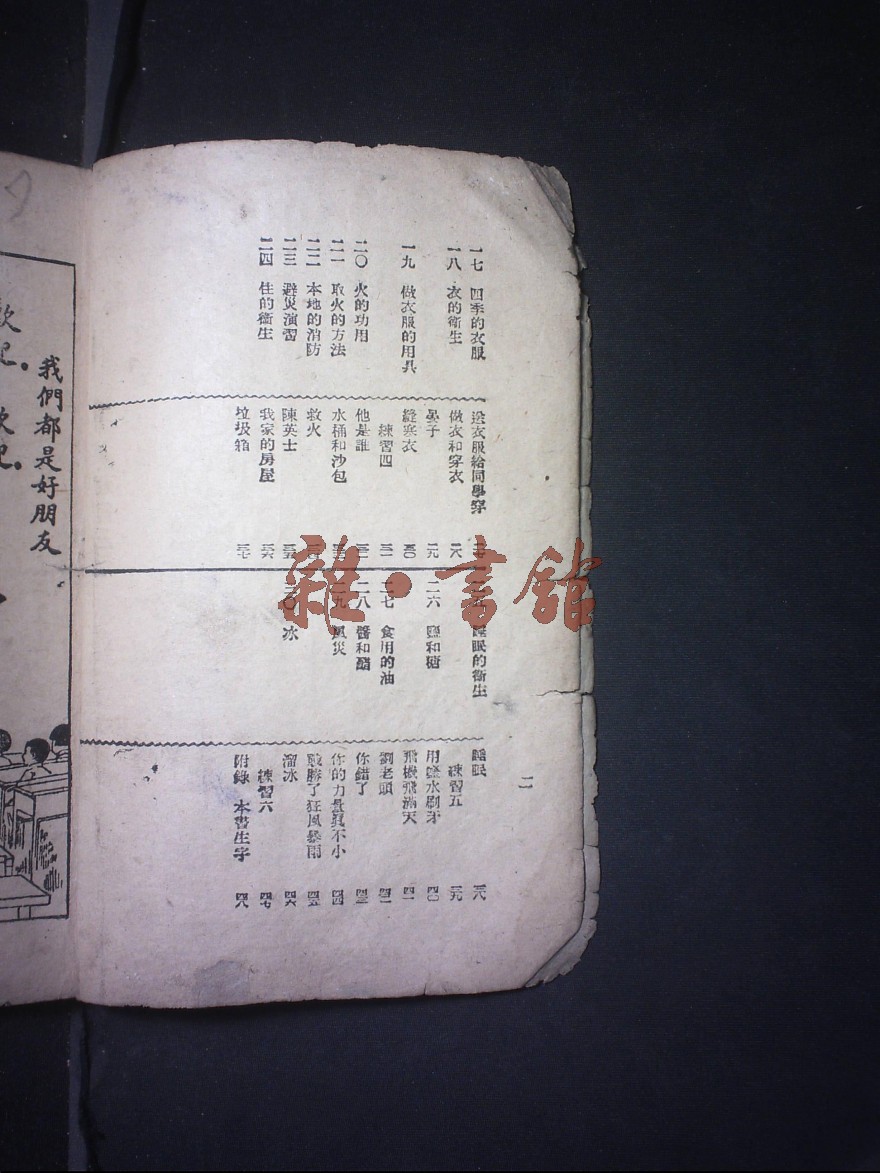 一七　四季的衣服
一八　衣的衞生
一九　做衣服的用具
二〇　火的功用
二一　取火的方法
二二　本地的消防
二三　避災演習
二四　住的衞生
送衣服給同學穿
做衣和穿衣　二八
二九
縫寒衣　三〇
練習四
他是誰
水桶和沙包
救火
陳英士
我家的房屋　三六
垃圾箱　三七
睡眠的衞生
二六　鹽和糖
二七　食用的油
二八　醬和醋
二九　風災
三〇　冰
睡眠　三八
練習五　三九
用鹽水刷牙　四〇
飛機飛滿天　四一
劉老頭　四二
你錯了　四三
你的力量眞不小　四四
戰勝了狂風暴雨　四五
溜冰　四六
練習六　四七
附錄　本書生字　四八
二
我們都是好朋友
雜·書館